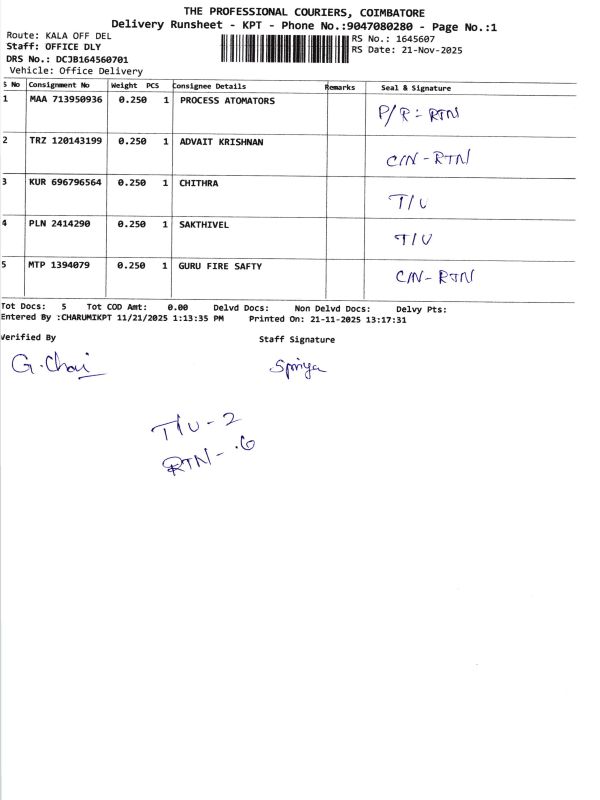 THE PROFESSIONAL COURIERS, COIMBATORE
Delivery Runsheet - KPT - Phone No.:9047080280 - Page No.:1
Route: KALA OFF DEL
RS No.: 1645607
Staff: OFFICE DLY
RS Date: 21-Nov-2025
DRS No.: DCJB164560701
Vehicle: Office Delivery
S No Consignment No Weight PCS Consignee Details Remarks Seal & Signature
1 MAA 713950936 0.250 1 PROCESS ATOMATORS P/R = RTN
2 TRZ 120143199 0.250 1 ADVAIT KRISHNAN C/N - RTN
3 KUR 696796564 0.250 1 CHITHRA T/U
4 PLN 2414290 0.250 1 SAKTHIVEL T/U
5 MTP 1394079 0.250 1 GURU FIRE SAFTY C/N - RTN
Tot Docs: 5 Tot COD Amt: 0.00 Delvd Docs: Non Delvd Docs: Delvy Pts:
Entered By :CHARUMIKPT 11/21/2025 1:13:35 PM Printed On: 21-11-2025 13:17:31
Verified By Staff Signature
G. Chai
T/U - 2
RTN - 6